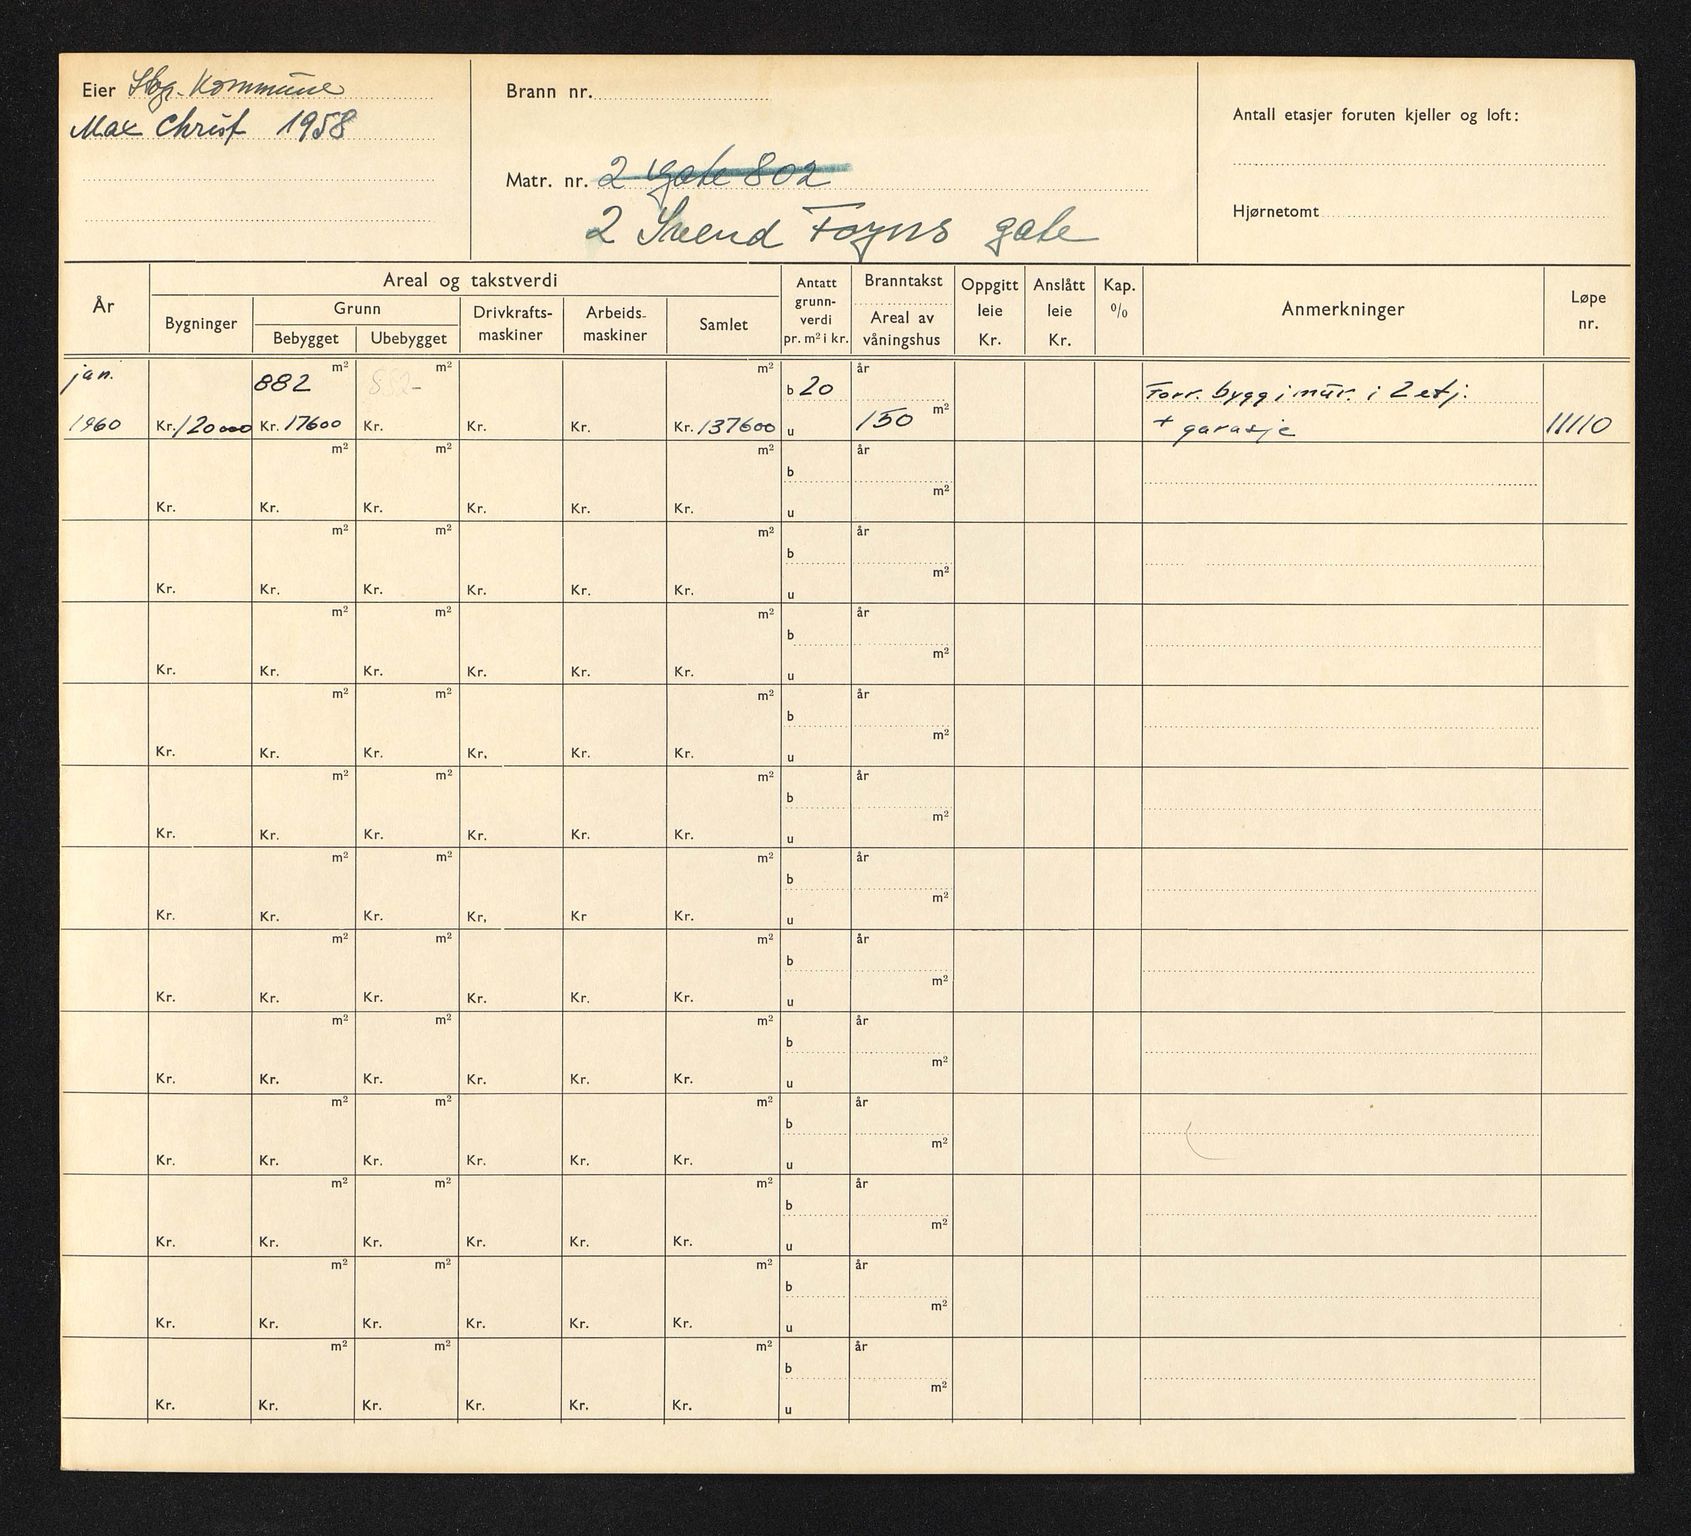 Eier Sbg. Kommune
Max Christ 1958
Brann nr.
Matr. nr. 2 Gate 802
2 Svend Foyns gate
Antall etasjer foruten kjeller og loft:
Hjørnetomt
År
Areal og takstverdi
Bygninger
Grunn
Bebygget Ubebygget
Drivkrafts-
maskiner
Arbeids-
maskiner
Samlet
Antatt
grunn-
verdi
pr. m² i kr.
Branntakst
Areal av
våningshus
Oppgitt
leie
Kr.
Anslått
leie
Kr.
Kap.
%
Anmerkninger
Løpe
nr.
jan. 882 m² 882- m² m² b 20 år Forr. bygg i mur. i 2 etj.
1960 Kr. 120000 Kr. 17600 Kr. Kr. Kr. Kr. 137600 u 150 m² + garasje 11110
m² m² m² b år
Kr. Kr. Kr. Kr. Kr. Kr. u m²
m² m² m² b år
Kr. Kr. Kr. Kr. Kr. Kr. u m²
m² m² m² b år
Kr. Kr. Kr. Kr. Kr. Kr. u m²
m² m² m² b år
Kr. Kr. Kr. Kr. Kr. Kr. u m²
m² m² m² b år
Kr. Kr. Kr. Kr. Kr. Kr. u m²
m² m² m² b år
Kr. Kr. Kr. Kr. Kr Kr. u m²
m² m² m² b år
Kr. Kr. Kr. Kr. Kr. Kr. u m²
m² m² m² b år
Kr. Kr. Kr. Kr. Kr. Kr. u m²
m² m² m² b år
Kr. Kr. Kr. Kr. Kr. Kr. u m²
m² m² m² b år
Kr. Kr. Kr. Kr. Kr. Kr. u m²
m² m² m² b år
Kr. Kr. Kr. Kr. Kr. Kr. u m²
m² m² m² b år
Kr. Kr. Kr. Kr. Kr. Kr. u m²